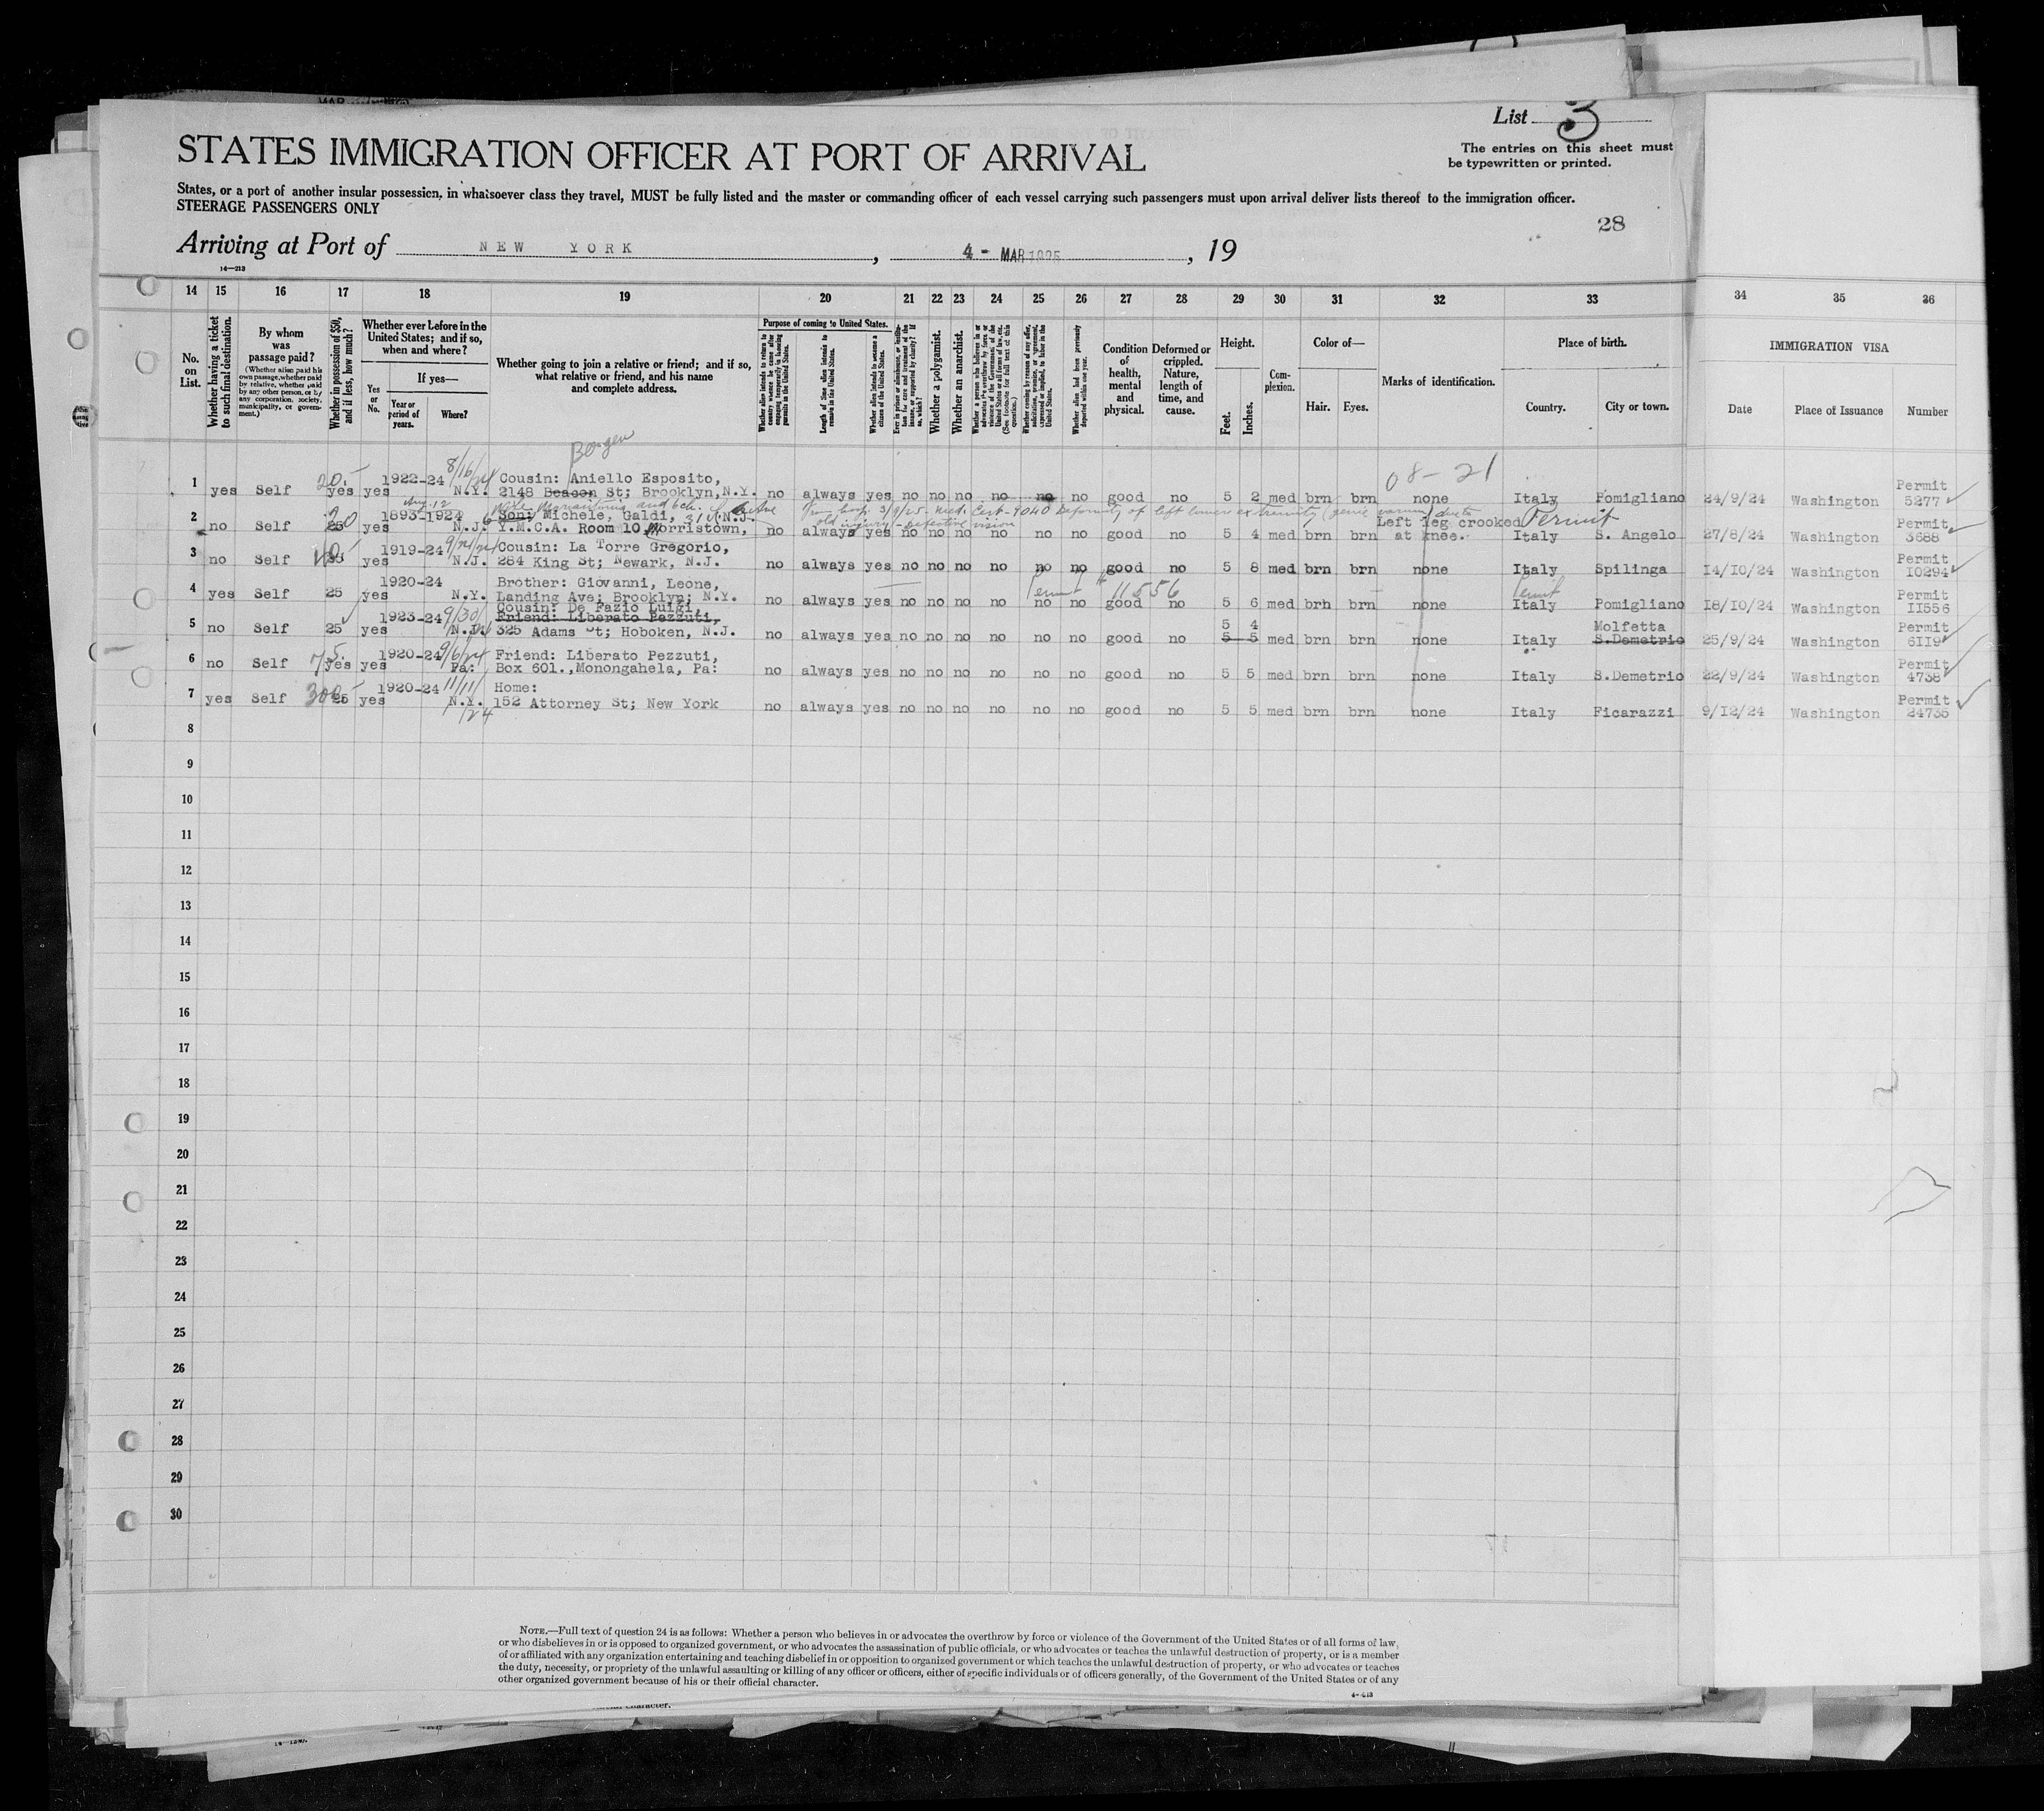 List 3
STATES IMMIGRATION OFFICER AT PORT OF ARRIVAL
The entries on this sheet must
be typewritten or printed.
States, or a port of another insular possession, in whatsoever class they travel, MUST be fully listed and the master or commanding officer of each vessel carrying such passengers must upon arrival deliver lists thereof to the immigration officer.
STEERAGE PASSENGERS ONLY
28
Arriving at Port of NEW YORK, 4 - MAR 1925, 19
14—213
14 15 16 17 18 19 20 21 22 23 24 25 26 27 28 29 30 31 32 33 34 35 36
No. on List.
Whether having a ticket to such final destination.
By whom was passage paid?
(Whether alien paid his own passage, whether paid by relative, whether paid by any other person, or by any corporation, society, municipality, or government.)
Whether in possession of $50, and if less, how much?
Whether ever before in the United States; and if so, when and where?
Yes or No.
If yes—
Year or period of years.
Where?
Whether going to join a relative or friend; and if so, what relative or friend, and his name and complete address.
Purpose of coming to United States.
Length of time alien intends to remain in the United States.
Whether alien intends to become a citizen of the United States.
Whether a polygamist.
Whether an anarchist.
Whether alien had been previously deported within one year.
Condition of health, mental and physical.
Deformed or crippled. Nature, length of time, and cause.
Height.
Feet. Inches.
Complexion.
Color of—
Hair. Eyes.
Marks of identification.
Place of birth.
Country. City or town.
IMMIGRATION VISA
Date Place of Issuance Number
Bergen
08-21
1 yes Self 20 yes yes 1922-24 8/16/24 N.Y. Cousin: Aniello Esposito,
2148 Beacon St; Brooklyn, N.Y. no always yes no no no no no no good no 5 2 med brn brn none Italy Pomigliano 24/9/24 Washington Permit 5277
from hosp. 3/9/25. Med. Cert. 9040 Deformity of left lower extremity (genu varum) due to
old injury - defective vision
2 no Self 20 25 yes Aug. 12 1893-1924 N.J. Son: Michele, Galdi, N.J.
Y.M.C.A. Room 10 Morristown, no always yes no no no no no no good no 5 4 med brn brn Left leg crooked at knee. Permit Italy S. Angelo 27/8/24 Washington Permit 3688
3 no Self 25 yes 1919-24 9/24/24 N.J. Cousin: La Torre Gregorio,
284 King St; Newark, N.J. no always yes no no no no no no good no 5 8 med brn brn none Italy Spilinga 14/10/24 Washington Permit 10294
Permit # 11556
Permit
4 yes Self 25 yes 1920-24 N.Y. Brother: Giovanni, Leone,
Landing Ave; Brooklyn; N.Y. no always yes no no no no no no good no 5 6 med brn brn none Italy Pomigliano 18/10/24 Washington Permit 11556
5 no Self 25 yes 1923-24 9/30/ N.J. Cousin: De Fazio Luigi,
Friend: Liberato Pezzuti,
325 Adams St; Hoboken, N.J. no always yes no no no no no no good no 5 4 5 5 med brn brn none Italy Molfetta S.Demetrio 25/9/24 Washington Permit 6119
6 no Self 75 yes yes 1920-24 9/6/24 Pa: Friend: Liberato Pezzuti,
Box 601., Monongahela, Pa: no always yes no no no no no no good no 5 5 med brn brn none Italy S.Demetrio 22/9/24 Washington Permit 4738
7 yes Self 300 25 yes 1920-24 11/11/24 N.Y. Home:
152 Attorney St; New York no always yes no no no no no no good no 5 5 med brn brn none Italy Ficarazzi 9/12/24 Washington Permit 24735
8
9
10
11
12
13
14
15
16
17
18
19
20
21
22
23
24
25
26
27
28
29
30
NOTE.—Full text of question 24 is as follows: Whether a person who believes in or advocates the overthrow by force or violence of the Government of the United States or of all forms of law,
or who disbelieves in or is opposed to organized government, or who advocates the assassination of public officials, or who advocates or teaches the unlawful destruction of property, or is a member
of or affiliated with any organization entertaining and teaching disbelief in or opposition to organized government or which teaches the unlawful destruction of property, or who advocates or teaches
the duty, necessity, or propriety of the unlawful assaulting or killing of any officer or officers, either of specific individuals or of officers generally, of the Government of the United States or of any
other organized government because of his or their official character.